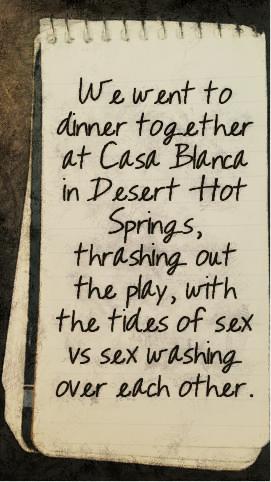 We went to
dinner together
at Casa Blanca
in Desert Hot
Springs,
thrashing out
the play, with
the tides of sex
vs sex washing
over each other.